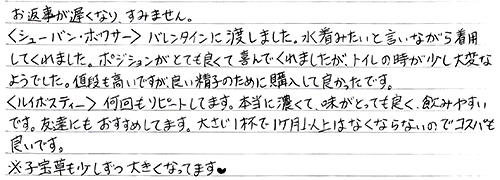 お返事が遅くなり、すみません。
〈シューバン・ホワサー〉バレンタインに渡しました。水着みたいと言いながら着用
してくれました。ポジションがとても良くて喜んでくれましたが、トイレの時が少し大変な
ようでした。値段も高いですが、良い精子のために購入して良かったです。
〈ルイボスティー〉何回もリピートしてます。本当に濃くて、味がとっても良く、飲みやすい
です。友達にもおすすめしてます。大さじ1杯で1ヶ月以上はなくならないのでコスパも
良いです。
※子宝草も少しずつ大きくなってます♥